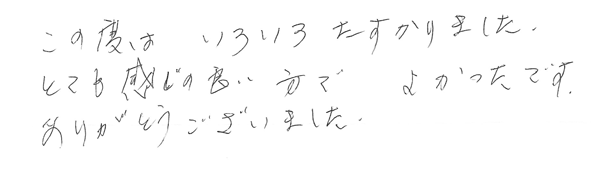 この度は いろいろ たすかりました.
とても感じの良い方で よかったです.
ありがとうございました.